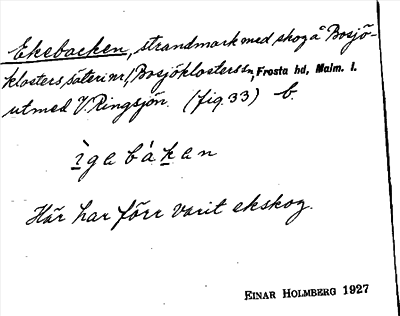 Ekebacken, strandmark med skog å Bosjö-
klosters säteri nr 1, Bosjöklosters sn, Frosta hd, Malm. l.
utmed V. Ringsjön. (fig. 33) b.
ìgabákan
Här har förr varit ekskog.
EINAR HOLMBERG 1927